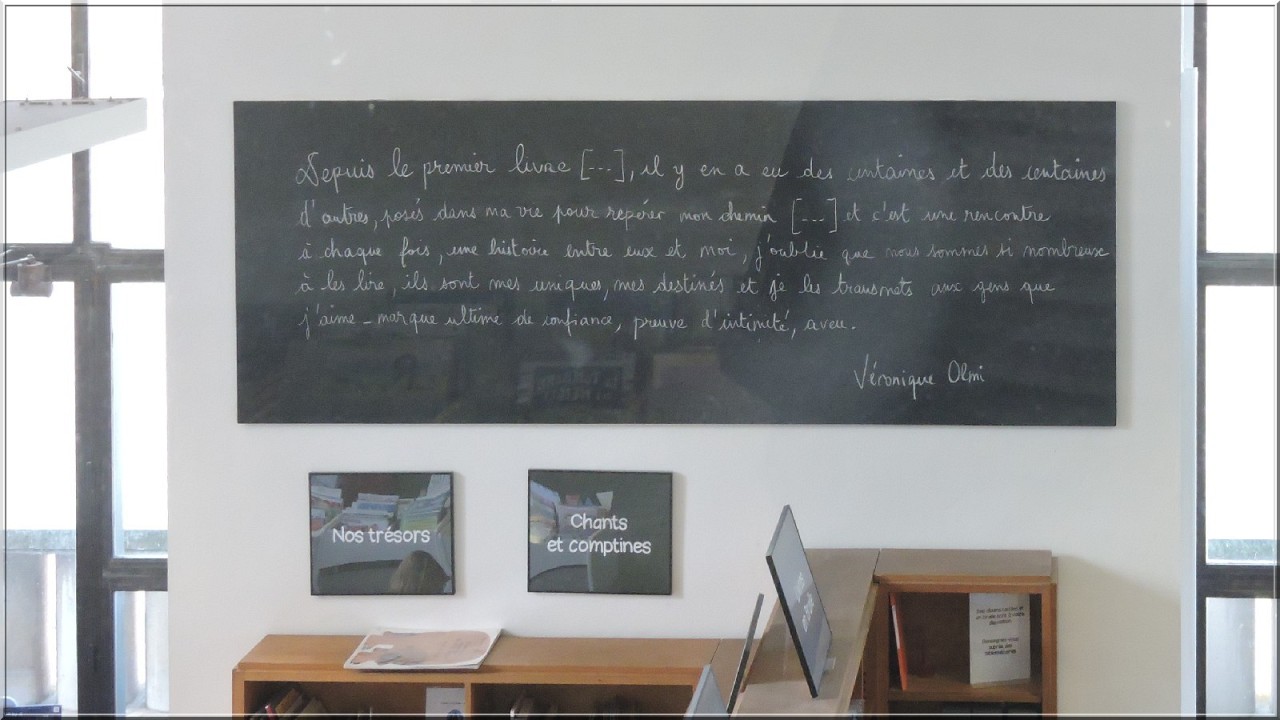 Depuis le premier livre [---], il y en a eu des centaines et des centaines
d'autres, posés dans ma vie pour repérer mon chemin [---] et c'est une rencontre
à chaque fois, une histoire entre eux et moi, j'oublie que nous sommes si nombreux
à les lire, ils sont mes uniques, mes destinés et je les transmets aux gens que
j'aime - marque ultime de confiance, preuve d'intimité, aveu.
Véronique Olmi
Nos trésors
Chants
et comptines